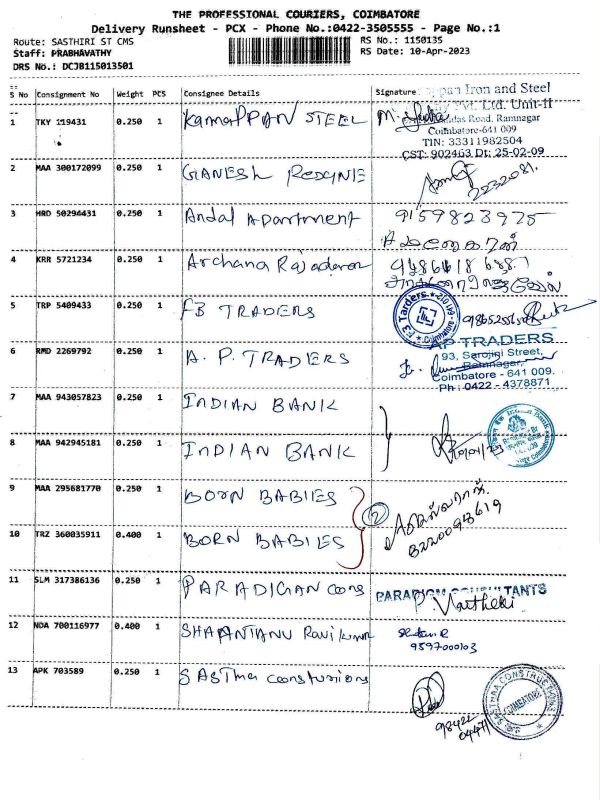 THE PROFESSIONAL COURIERS, COIMBATORE
Delivery Runsheet - PCX - Phone No.:0422-3505555 - Page No.:1
Route: SASTHIRI ST CMS
RS No.: 1150135
Staff: PRABHAVATHY
RS Date: 10-Apr-2023
DRS No.: DCJB115013501
S No Consignment No Weight PCS Consignee Details Signature
1 TKY 119431 0.250 1 KannaPPAN STEEL
Iron and Steel
Pvt. Ltd. Unit-II
Road, Ramnagar
Coimbatore-641 009
TIN: 33311982504
CST: 902463 Dt: 25-02-09
2 MAA 300172099 0.250 1 GANESH
3 HRD 50294431 0.250 1 Andal Apartment 9159823975
4 KRR 5721234 0.250 1 Archana
5 TRP 5409433 0.250 1 F3 TRADERS
F-3 Tarders Coimbatore
6 RMD 2269792 0.250 1 A. P. TRADERS
AP TRADERS
93, Sarojini Street,
Ramnagar,
Coimbatore - 641 009.
Ph : 0422 - 4378871
7 MAA 943057823 0.250 1 INDIAN BANK
8 MAA 942945181 0.250 1 INDIAN BANK
9 MAA 295681770 0.250 1 BORN BABIES
2
10 TRZ 360035911 0.400 1 BORN BABIES
11 SLM 317386136 0.250 1 PARADIGAN cons
PARADIGM CONSULTANTS
12 NDA 700116977 0.400 1 SHANTANU Ravikumar
9597000103
13 APK 703589 0.250 1 SASTha
SASTHAA CONSTRUCTIONS COIMBATORE
98422
04471